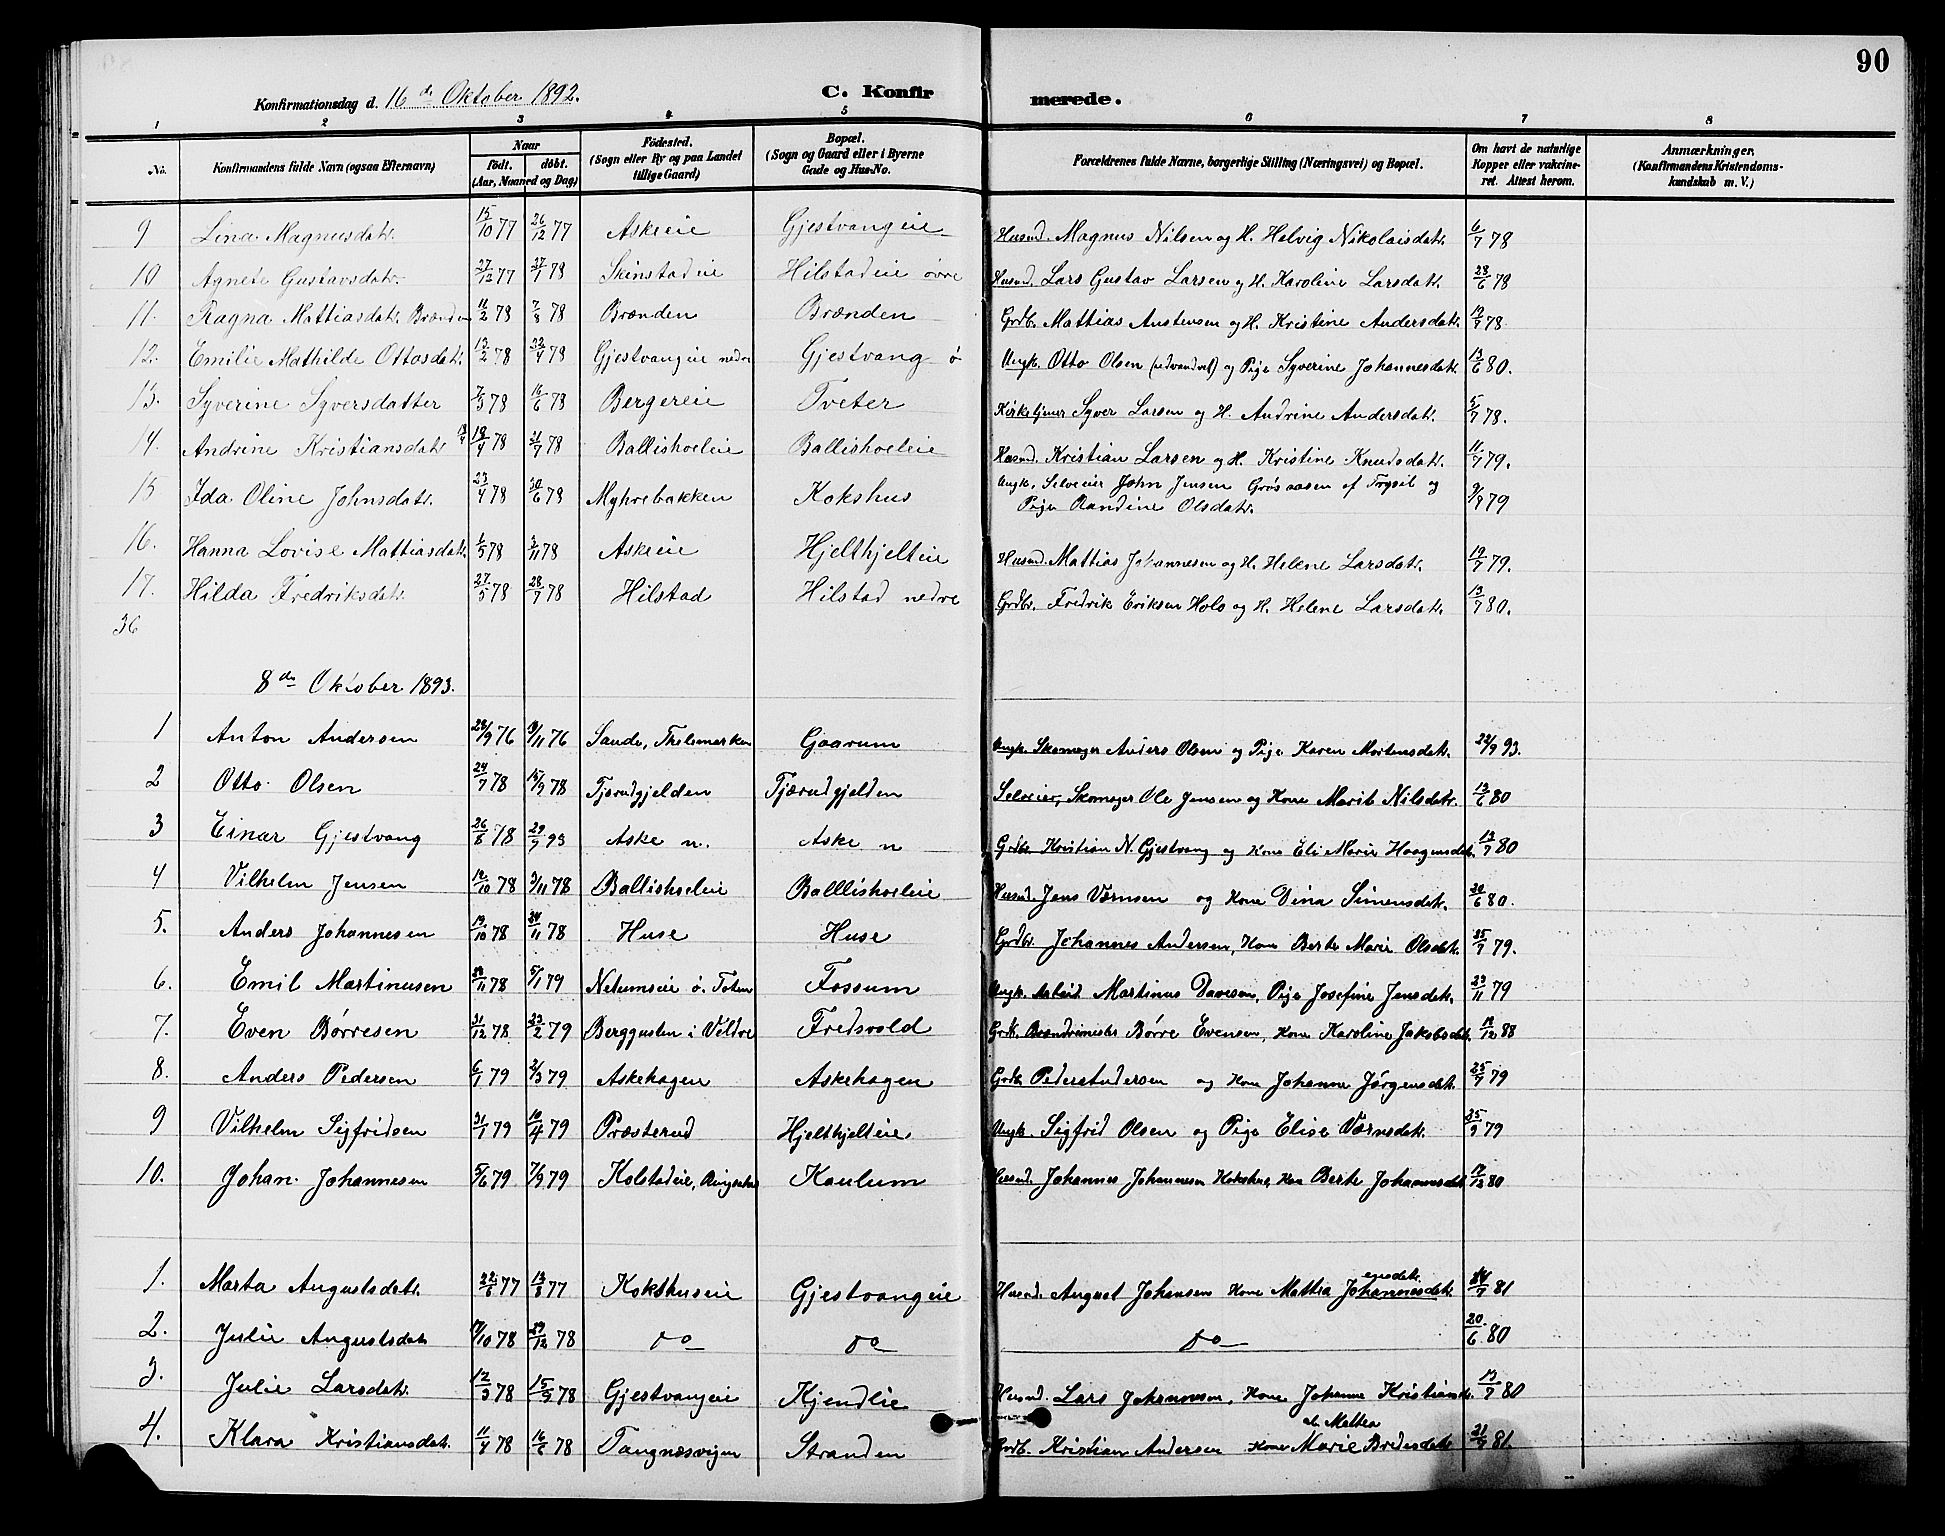 90
Konfirmationsdag d. 16 de Oktober 1892. C. Konfirmerede.
1 2 3 4 5 6 7 8
No. Konfirmandens fulde Navn (ogsaa Efternavn) Naar født. døbt. (Aar, Maaned og Dag) Fødested. (Sogn eller By og paa Landet tillige Gaard) Bopæl. (Sogn og Gaard eller i Byerne Gade og Hus-No. Forældrenes fulde Navne, borgerlige Stilling (Næringsvei) og Bopæl. Om havt de naturlige Kopper eller vakcineret. Attest herom. Anmærkninger, (Konfirmandens Kristendomskundskab m. V.)
9 Lina Magnusdatr. 15/10 77 26/12 77 Askeeie Gjestvangeie Husmd. Magnus Nilsen og H. Helvig Nikolaisdatr. 6/7 78
10 Agnete Gustavsdatr. 27/12 77 27/1 78 Skinstadeie Hilstadeie øvre Husmd. Lars Gustav Larsen og H. Karoline Larsdatr. 28/6 78
11. Ragna Mattiasdatr. Brænden 11/2 78 7/8 78 Brænden Brænden Grdbr. Mattias Austensen og H. Kristine Andersdatr. 19/7 78.
12. Emilie Mathilde Ottosdatr. 13/2 78 22/4 78 Gjestvangeie nedre Gjestvang ø Ungk. Otto Olsen (udvandret) og Pige Syverine Johannesdatr. 13/6 80.
13. Syverine Syversdatter 7/3 78 16/6 78 Bergereie Tveter Kirketjener Syver Larsen og H. Andrine Andersdatr. 5/7 78.
14. Andrine Kristiansdatr. 18/4 78 21/7 78 Ballishoeleie Ballishoeleie Husmd. Kristian Larsen og H. Kristine Knudsdatr. 11/7 79.
15 Ida Oline Johnsdatr. 23/4 78 30/6 78 Myhrebakken Kokshus Ungk. Selveier John Jensen Grøsaasen af Trysil og
Pige Randine Olsdatr. 9/9 79
16. Hanna Lovise Mattiasdatr. 1/5 78 3/11 78 Askeeie Hjelthjelteie Husmd. Mattias Johannesen og H. Helene Larsdatr. 19/7 79.
17. Hilda Fredriksdatr. 27/5 78 28/7 78 Hilstad Hilstad nedre Grdbr. Fredrik Eriksen Hols og H. Helene Larsdatr. 13/7 80.
36
8 de Oktober 1893.
1 Anton Andersen 28/9 76 19/11 76 Sande, Thelemarken Gaarum Ungk. Skomager Anders Olsen og Pige Karen Mortensdatr. 22/9 93.
2 Otto Olsen 24/7 78 15/9 78 Tjærudgjelden Tjærudgjelden Selveier, Skomager Ole Jensen og Kone Marit Nilsdatr. 13/6 80
3 Einar Gjestvang 26/8 78 29/9 93 Aske n. Aske n Grdbr. Kristian N. Gjestvang og Kone Eli Marie Haagensdatr. 13/7 80
4 Vilhelm Jensen 12/10 78 3/11 78 Ballishoeleie Balllishoeleie Husmd. Jens Værnsen og Kone Dina Simensdatr. 20/6 80.
5. Anders Johannesen 19/10 78 24/11 78 Huse Huse Grdbr. Johannes Andersen, Kone Berte Marie Olsdatr. 25/7 79.
6. Emil Martinusen /11 78 5/1 79 Netumseie ø. Toten Fossum Ungk. Arbeid. Martinus Davesen, Pige Josefine Jensdatr. 23/11 79
7. Even Børresen 31/12 78 23/2 79 Berggusten i Veldre Fredsvold Grdbr. Brandmester Børre Evensen, Kone Karoline Jakobsdatr. 12/12 88
8. Anders Pedersen 6/1 79 2/3 79 Askehagen Askehagen Grdbr. Peder Andersen og Kone Johanne Jørgensdatr. 25/7 79
9 Vilhelm Sigfridsen 31/1 79 10/4 79 Præsterud Hjelthjelteie Ungk. Sigfrid Olsen og Pige Elise Værnsdatr. 25/9 79
10. Johan Johannesen 5/6 79 7/9 79 Kolstadeie, Ringsaker Kaulum Husmd. Johannes Johannesen Kokshus, Kone Berte Johannesdatr. 12/12 80
1. Marta Augustsdatr. 22/6 77 13/8 77 Kokshuseie Gjestvangeie Husmd. August Johansen Kone Mattea Johannesdatr. ensdatr. 24/7 81
2. Julie Augustsdatr. /10 78 29/12 78 do do do 20/6 80
3. Julie Larsdatr. 12/3 78 15/9 78 Gjestvangeie Kjendlie Husmd. Lars Johannesen, Kone Johanne Kristiansdr. 13/7 80
4. Klara Kristiansdatr. 11/4 78 16/6 78 Tangnæsvigen Stranden Grdb. Kristian Andersen Kone Marie el. Mattea Bredesdatr. 21/9 81.